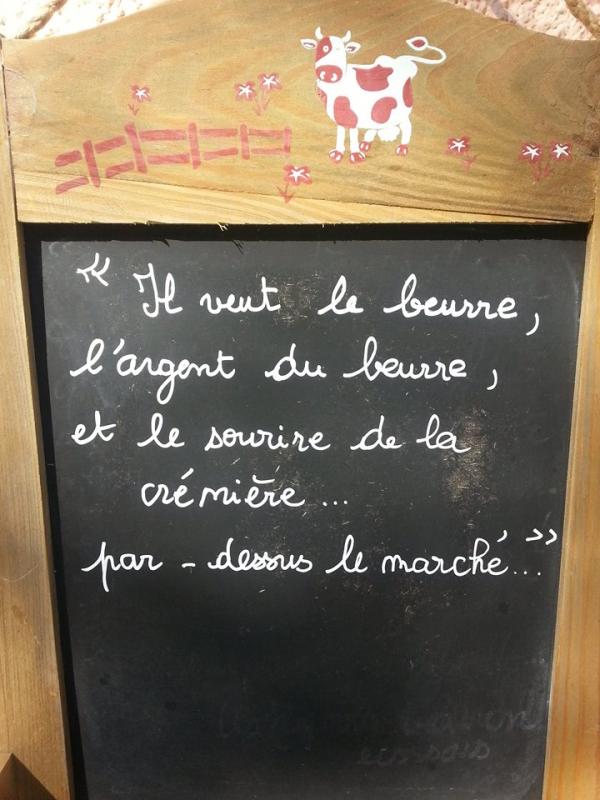 « Il veut le beurre,
l'argent du beurre,
et le sourire de la
crémière...
par-dessus le marché... »